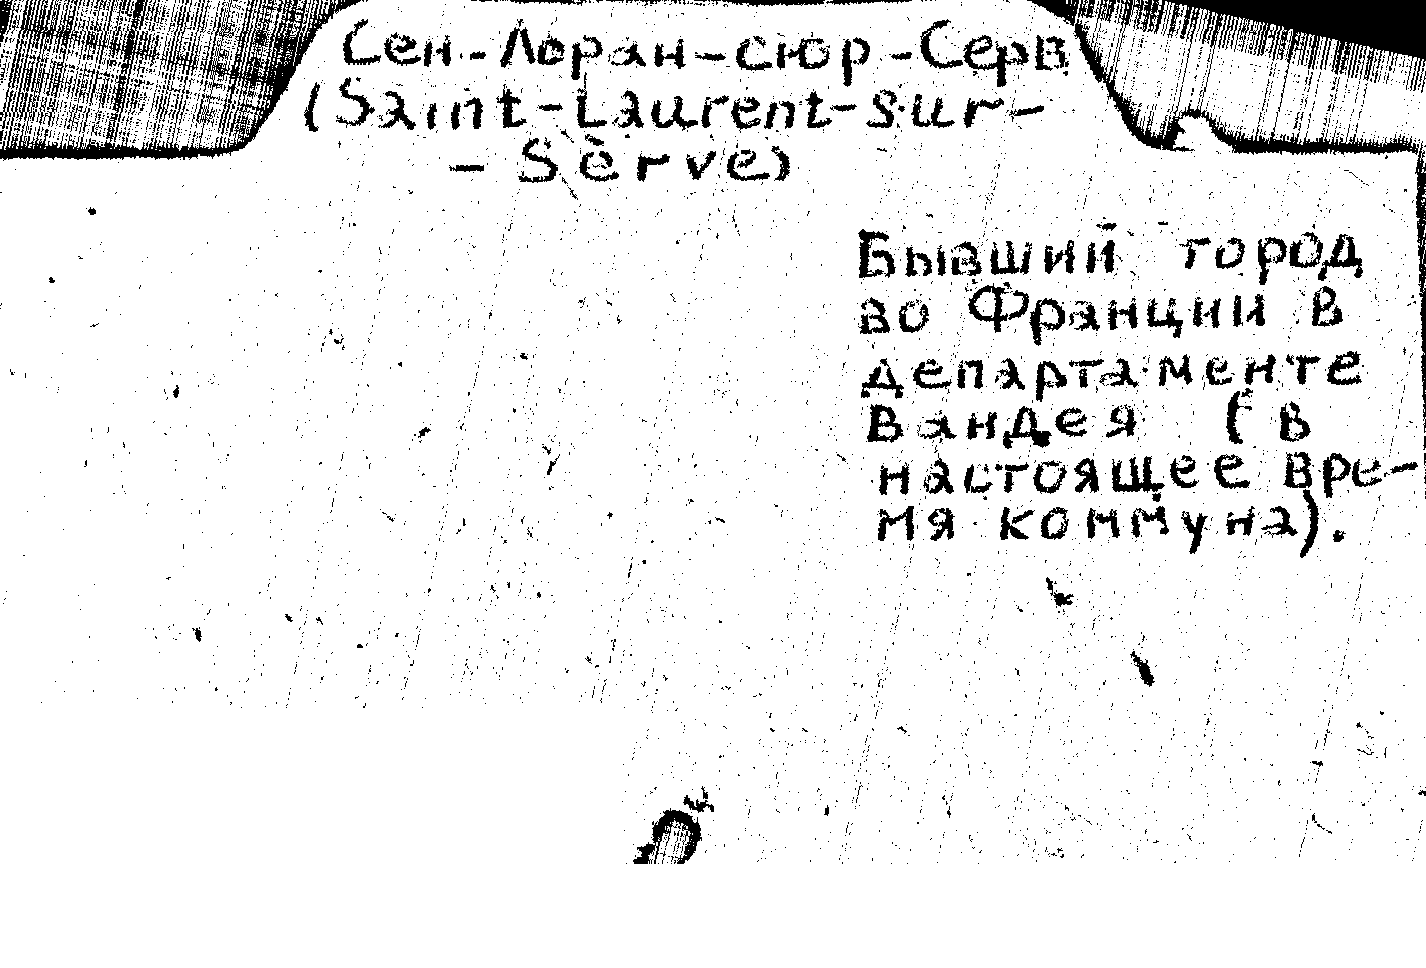 Сен-Лоран-сюр-Серв
(Saint-Laurent-sur-
-Sèrve)
Бывший город
во Франции в
департаменте
Вандея (в
настоящее вре-
мя коммуна).